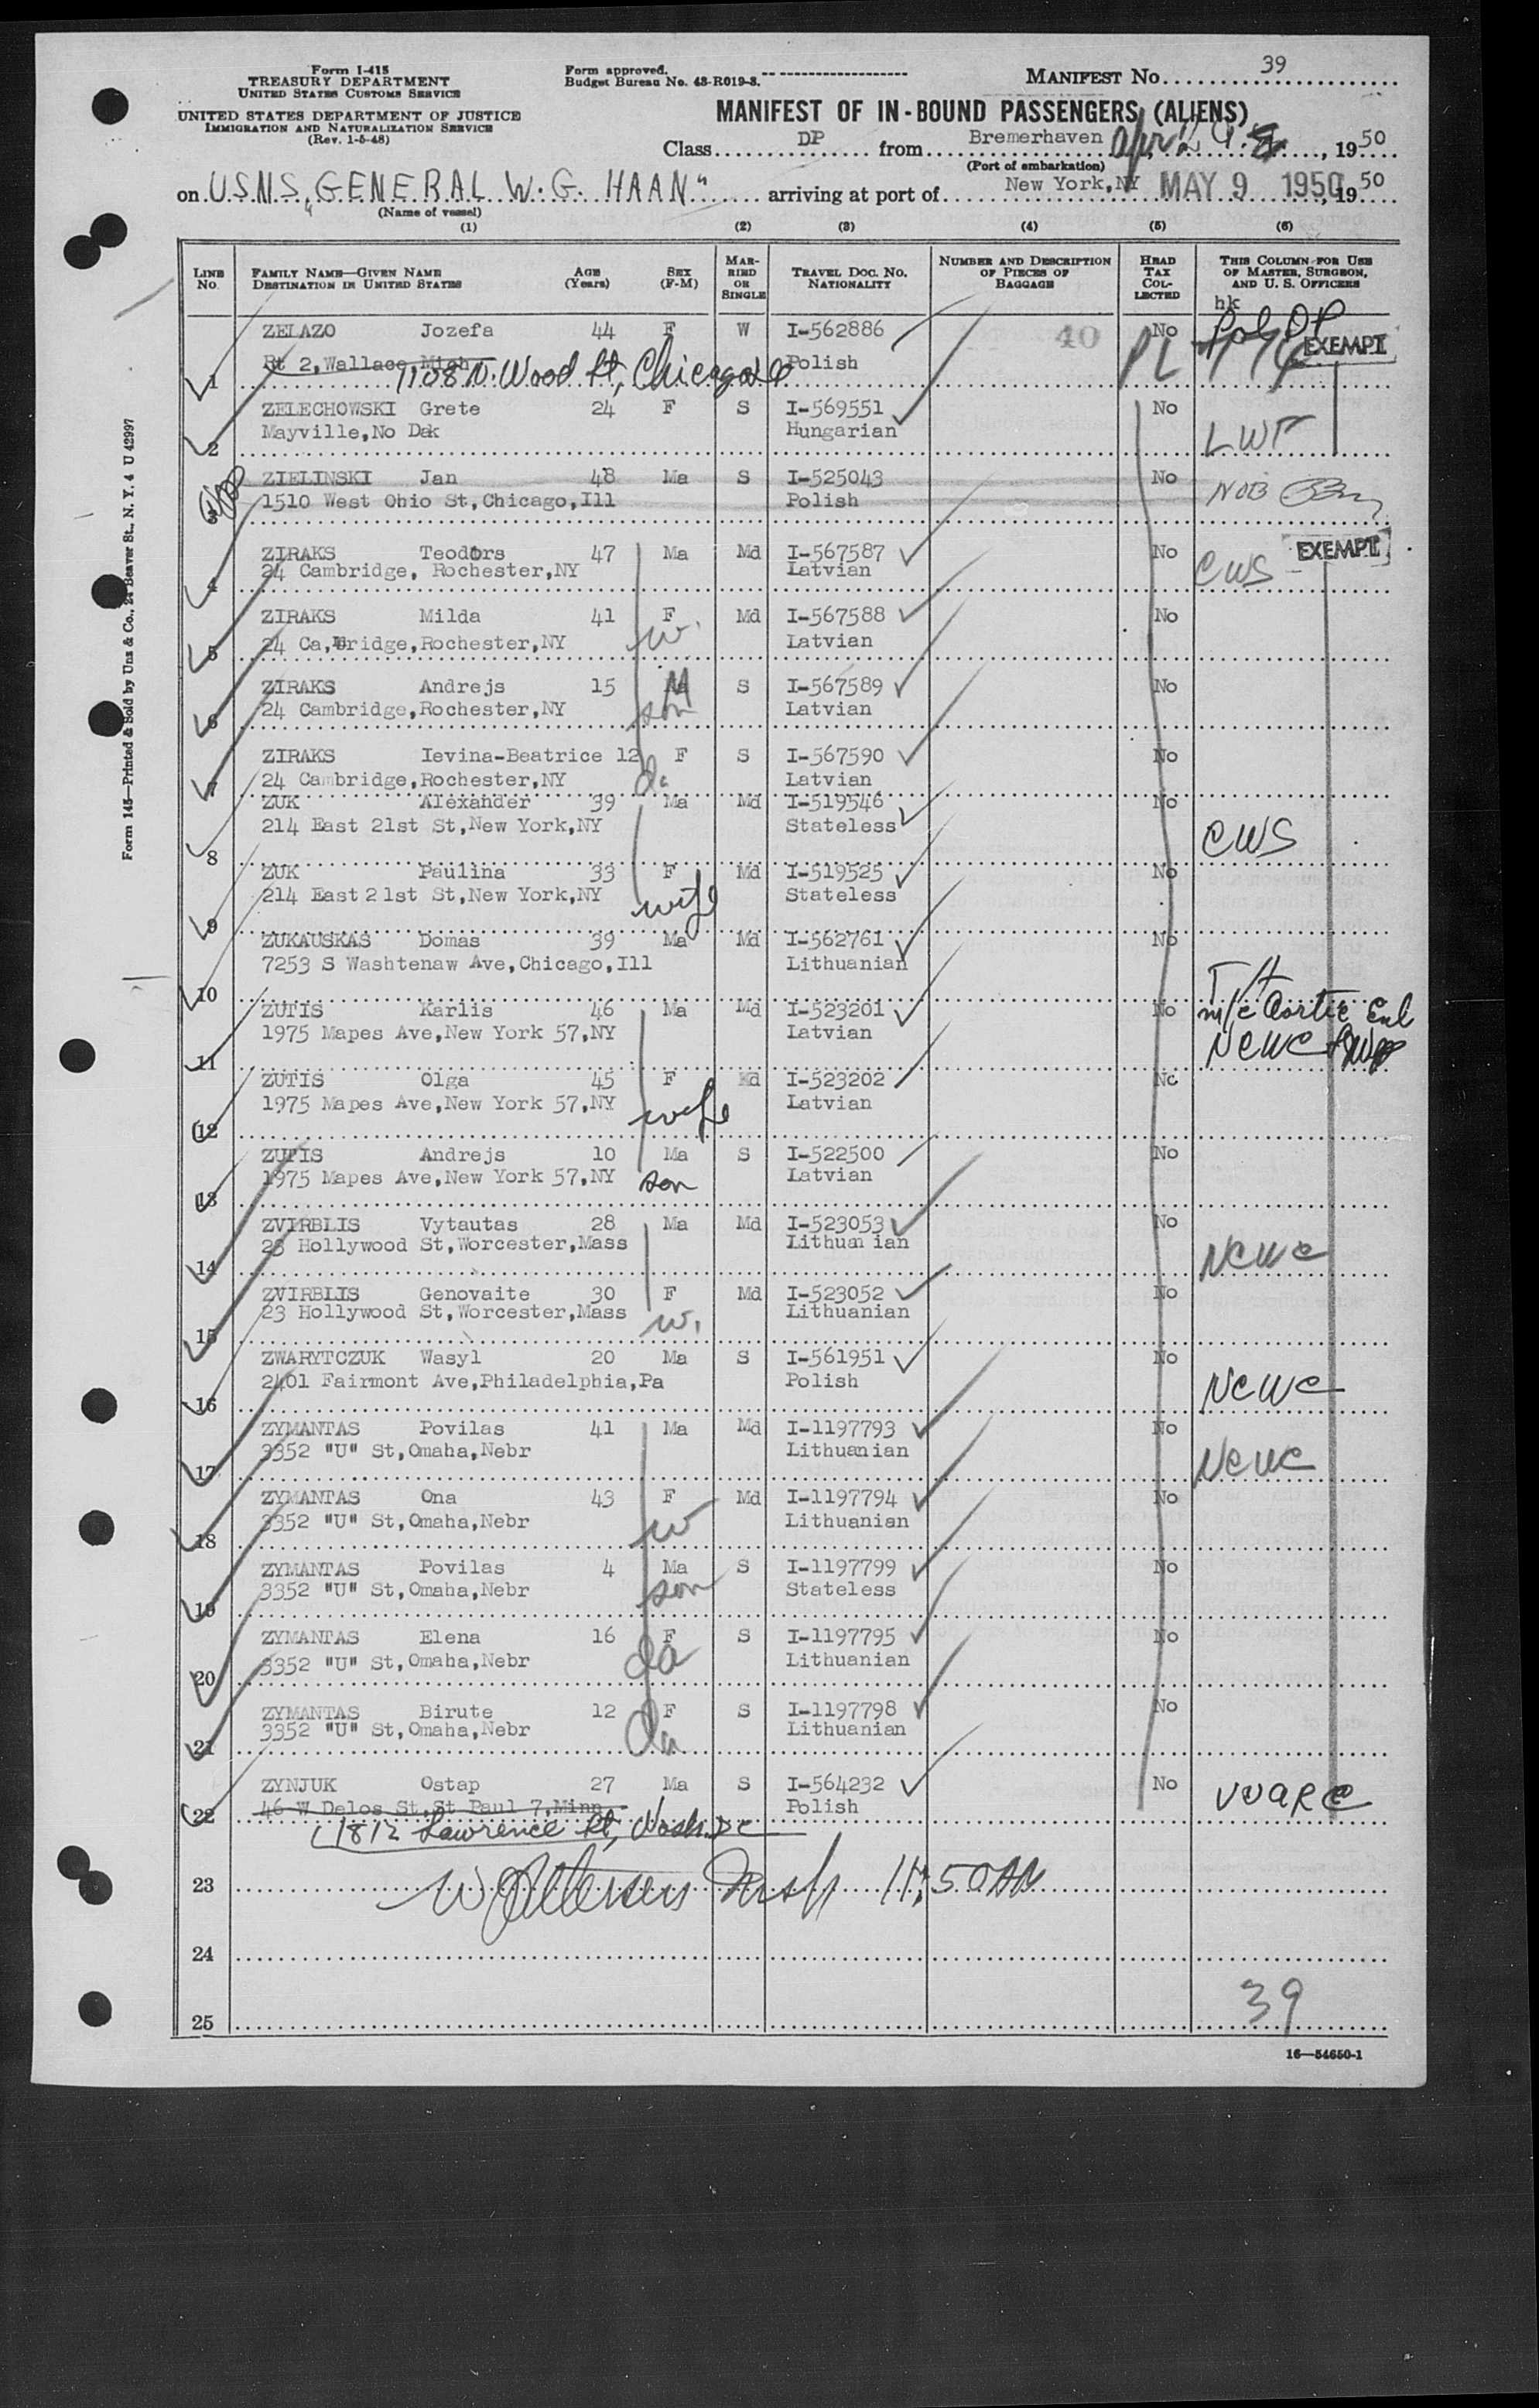 Form I-415
TREASURY DEPARTMENT
UNITED STATES CUSTOMS SERVICE
UNITED STATES DEPARTMENT OF JUSTICE
IMMIGRATION AND NATURALIZATION SERVICE
(Rev. 1-5-48)
Form approved.
Budget Bureau No. 43-R019-3.
MANIFEST No. 39
MANIFEST OF IN-BOUND PASSENGERS (ALIENS)
Class DP from Bremerhaven, 1950
(Port of embarkation)
on U.S.N.S. "GENERAL W. G. HAAN" arriving at port of New York, NY MAY 9 1950, 1950
(Name of vessel)
(1) (2) (3) (4) (5) (6)
LINE NO. FAMILY NAME—GIVEN NAME DESTINATION IN UNITED STATES AGE (Years) SEX (F-M) MARRIED OR SINGLE TRAVEL DOC. NO. NATIONALITY NUMBER AND DESCRIPTION OF PIECES OF BAGGAGE HEAD TAX COLLECTED THIS COLUMN FOR USE OF MASTER, SURGEON, AND U. S. OFFICERS
hk
ZELAZO Jozefa 44 F W I-562886 40 No
1 Rt 2, Wallace, Mich Polish PL EXEMPT
1108 N. Wood St, Chicago Ill
ZELECHOWSKI Grete 24 F S I-569551 No
2 Mayville, No Dak Hungarian LWF
ZIELINSKI Jan 48 Ma S I-525043 No
3 1510 West Ohio St, Chicago, Ill Polish NOB
ZIRAKS Teodors 47 Ma Md I-567587 No EXEMPT
4 24 Cambridge, Rochester, NY Latvian CWS
ZIRAKS Milda 41 F Md I-567588 No
5 24 Ca,bridge, Rochester, NY w. Latvian
ZIRAKS Andrejs 15 M S I-567589 No
6 24 Cambridge, Rochester, NY son Latvian
ZIRAKS Ievina-Beatrice 12 F S I-567590 No
7 24 Cambridge, Rochester, NY d. Latvian
ZUK Alexander 39 Ma Md I-519546 No
8 214 East 21st St, New York, NY Stateless CWS
ZUK Paulina 33 F Md I-519525 No
9 214 East 21st St, New York, NY wife Stateless
ZUKAUSKAS Domas 39 Ma Md I-562761 No
10 7253 S Washtenaw Ave, Chicago, Ill Lithuanian
ZUTIS Karlis 46 Ma Md I-523201 No m/c Aortic Enl
11 1975 Mapes Ave, New York 57, NY Latvian NCWC
ZUTIS Olga 45 F Md I-523202 No
12 1975 Mapes Ave, New York 57, NY wife Latvian
ZUTIS Andrejs 10 Ma S I-522500 No
13 1975 Mapes Ave, New York 57, NY son Latvian
ZVIRBLIS Vytautas 28 Ma Md I-523053 No
14 23 Hollywood St, Worcester, Mass Lithuanian NCWC
ZVIRBLIS Genovaite 30 F Md I-523052 No
15 23 Hollywood St, Worcester, Mass w. Lithuanian
ZWARYTCZUK Wasyl 20 Ma S I-561951 No
16 2401 Fairmont Ave, Philadelphia, Pa Polish NCWC
ZYMANTAS Povilas 41 Ma Md I-1197793 No
17 3352 "U" St, Omaha, Nebr Lithuanian NCWC
ZYMANTAS Ona 43 F Md I-1197794 No
18 3352 "U" St, Omaha, Nebr w Lithuanian
ZYMANTAS Povilas 4 Ma S I-1197799 No
19 3352 "U" St, Omaha, Nebr son Stateless
ZYMANTAS Elena 16 F S I-1197795 No
20 3352 "U" St, Omaha, Nebr da Lithuanian
ZYMANTAS Birute 12 F S I-1197798 No
21 3352 "U" St, Omaha, Nebr da Lithuanian
ZYNJUK Ostap 27 Ma S I-564232 No
22 46 W Delos St, St Paul 7, Minn Polish
1812 Lawrence St, Wash. DC
23 11:50 AM
24
25 39
16—54650-1
Form 145—Printed & Sold by Unz & Co., 24 Beaver St., N. Y. 4 U 42997